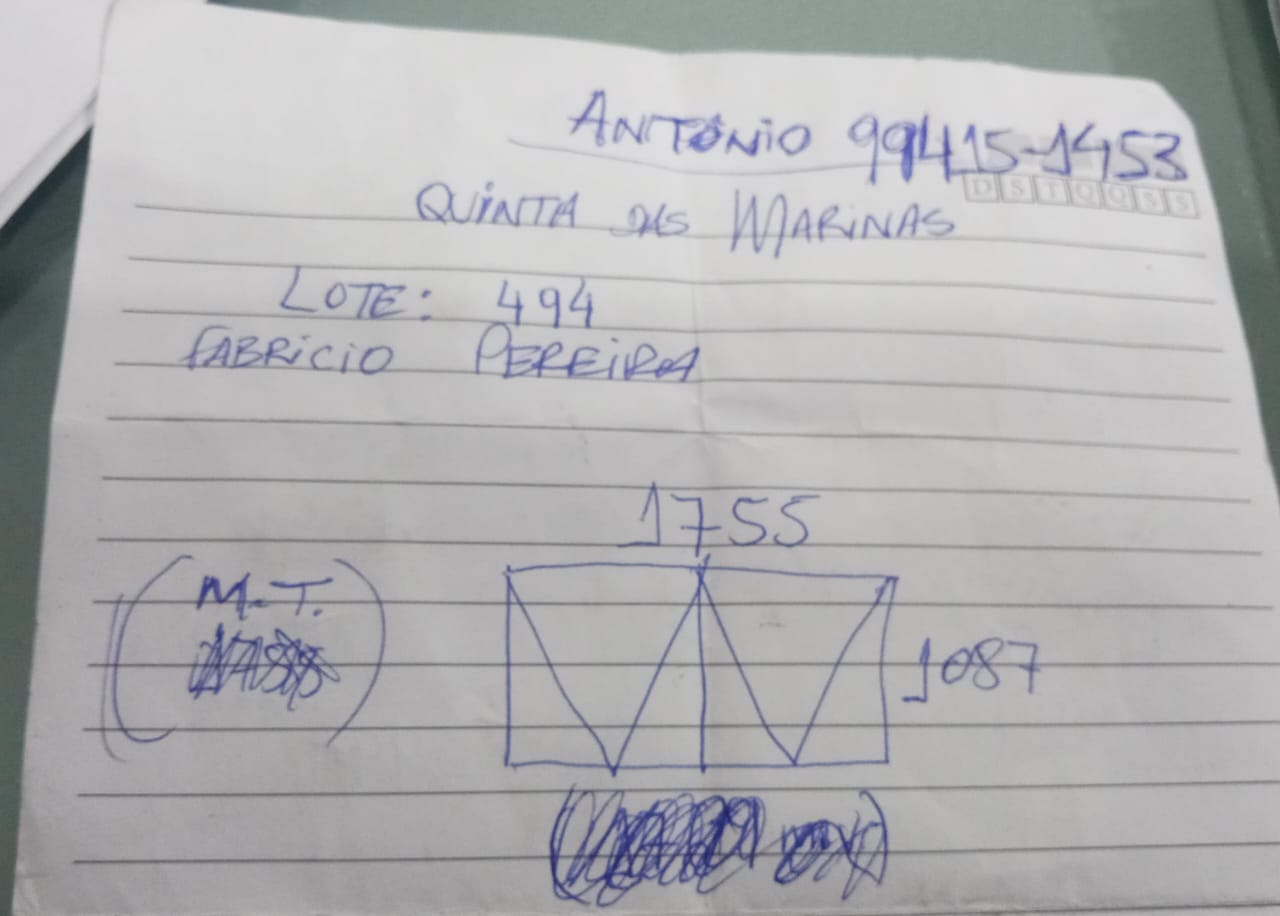 ANTÔNIO 99415-1453
D S T Q Q S S
QUINTA DAS MARINAS
LOTE: 494
FABRICIO PEREIRA
1755
(M.T.)
1087